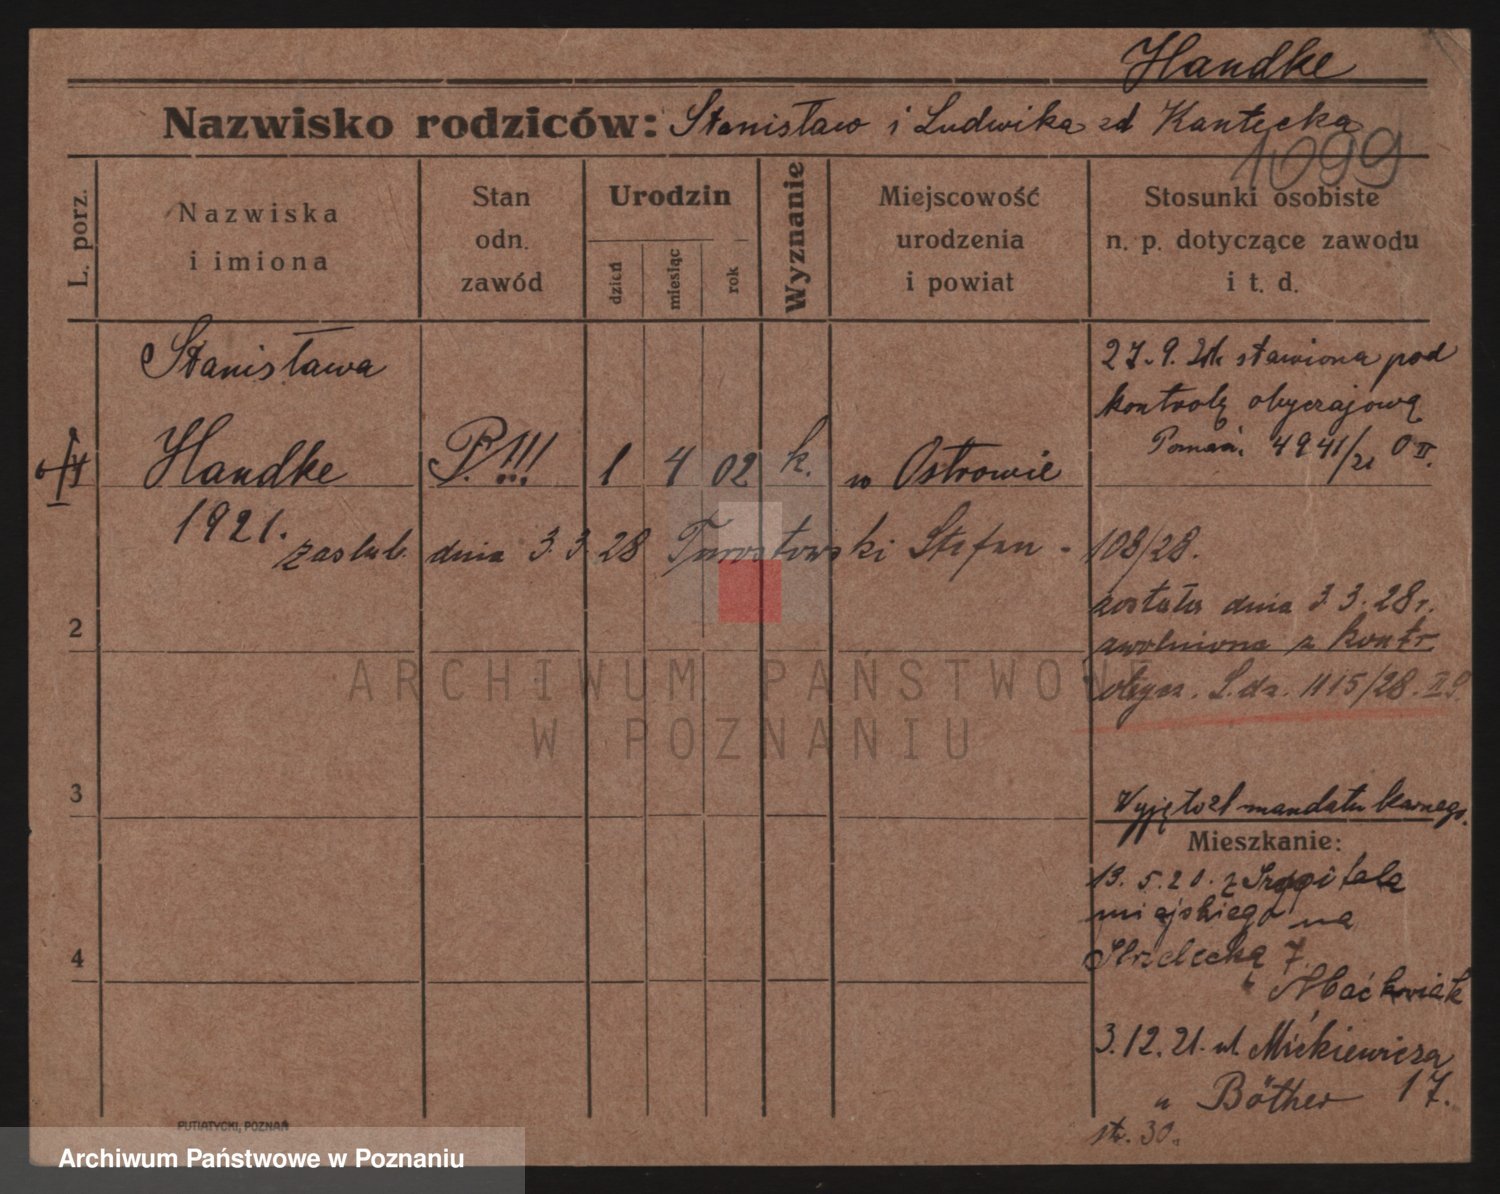 Handke
Nazwisko rodziców: Stanisław i Ludwika zd Kantecka
1099
L. porz.
Nazwiska
i imiona
Stan
odn.
zawód
Urodzin
dzień
miesiąc
rok
Wyznanie
Miejscowość
urodzenia
i powiat
Stosunki osobiste
n. p. dotyczące zawodu
i t. d.
Stanisława
Handke
1921.
P. !!! 1 4 02 k. w Ostrowie
27. 9. stawiona pod
kontrolę obyczajową
Poznań, 4941/21 O II.
zaślub. dnia 3. 3 28 Stefan - 108/28.
została dnia 3 3. 28 r.
zwolniona z kontr.
obycz. L. dz. 1115/28. II
2
3
4
Wyjęto z mandatu karnego.
Mieszkanie:
19. 5. 20. z Szpitala
miejskiego na
Strzelecką 7.
Maćkowiak
3. 12. 21. ul. Mickiewicza
17.
" Böther
str. 30.
PUTIATYCKI, POZNAŃ
ARCHIWUM PAŃSTWOWE
W POZNANIU
Archiwum Państwowe w Poznaniu